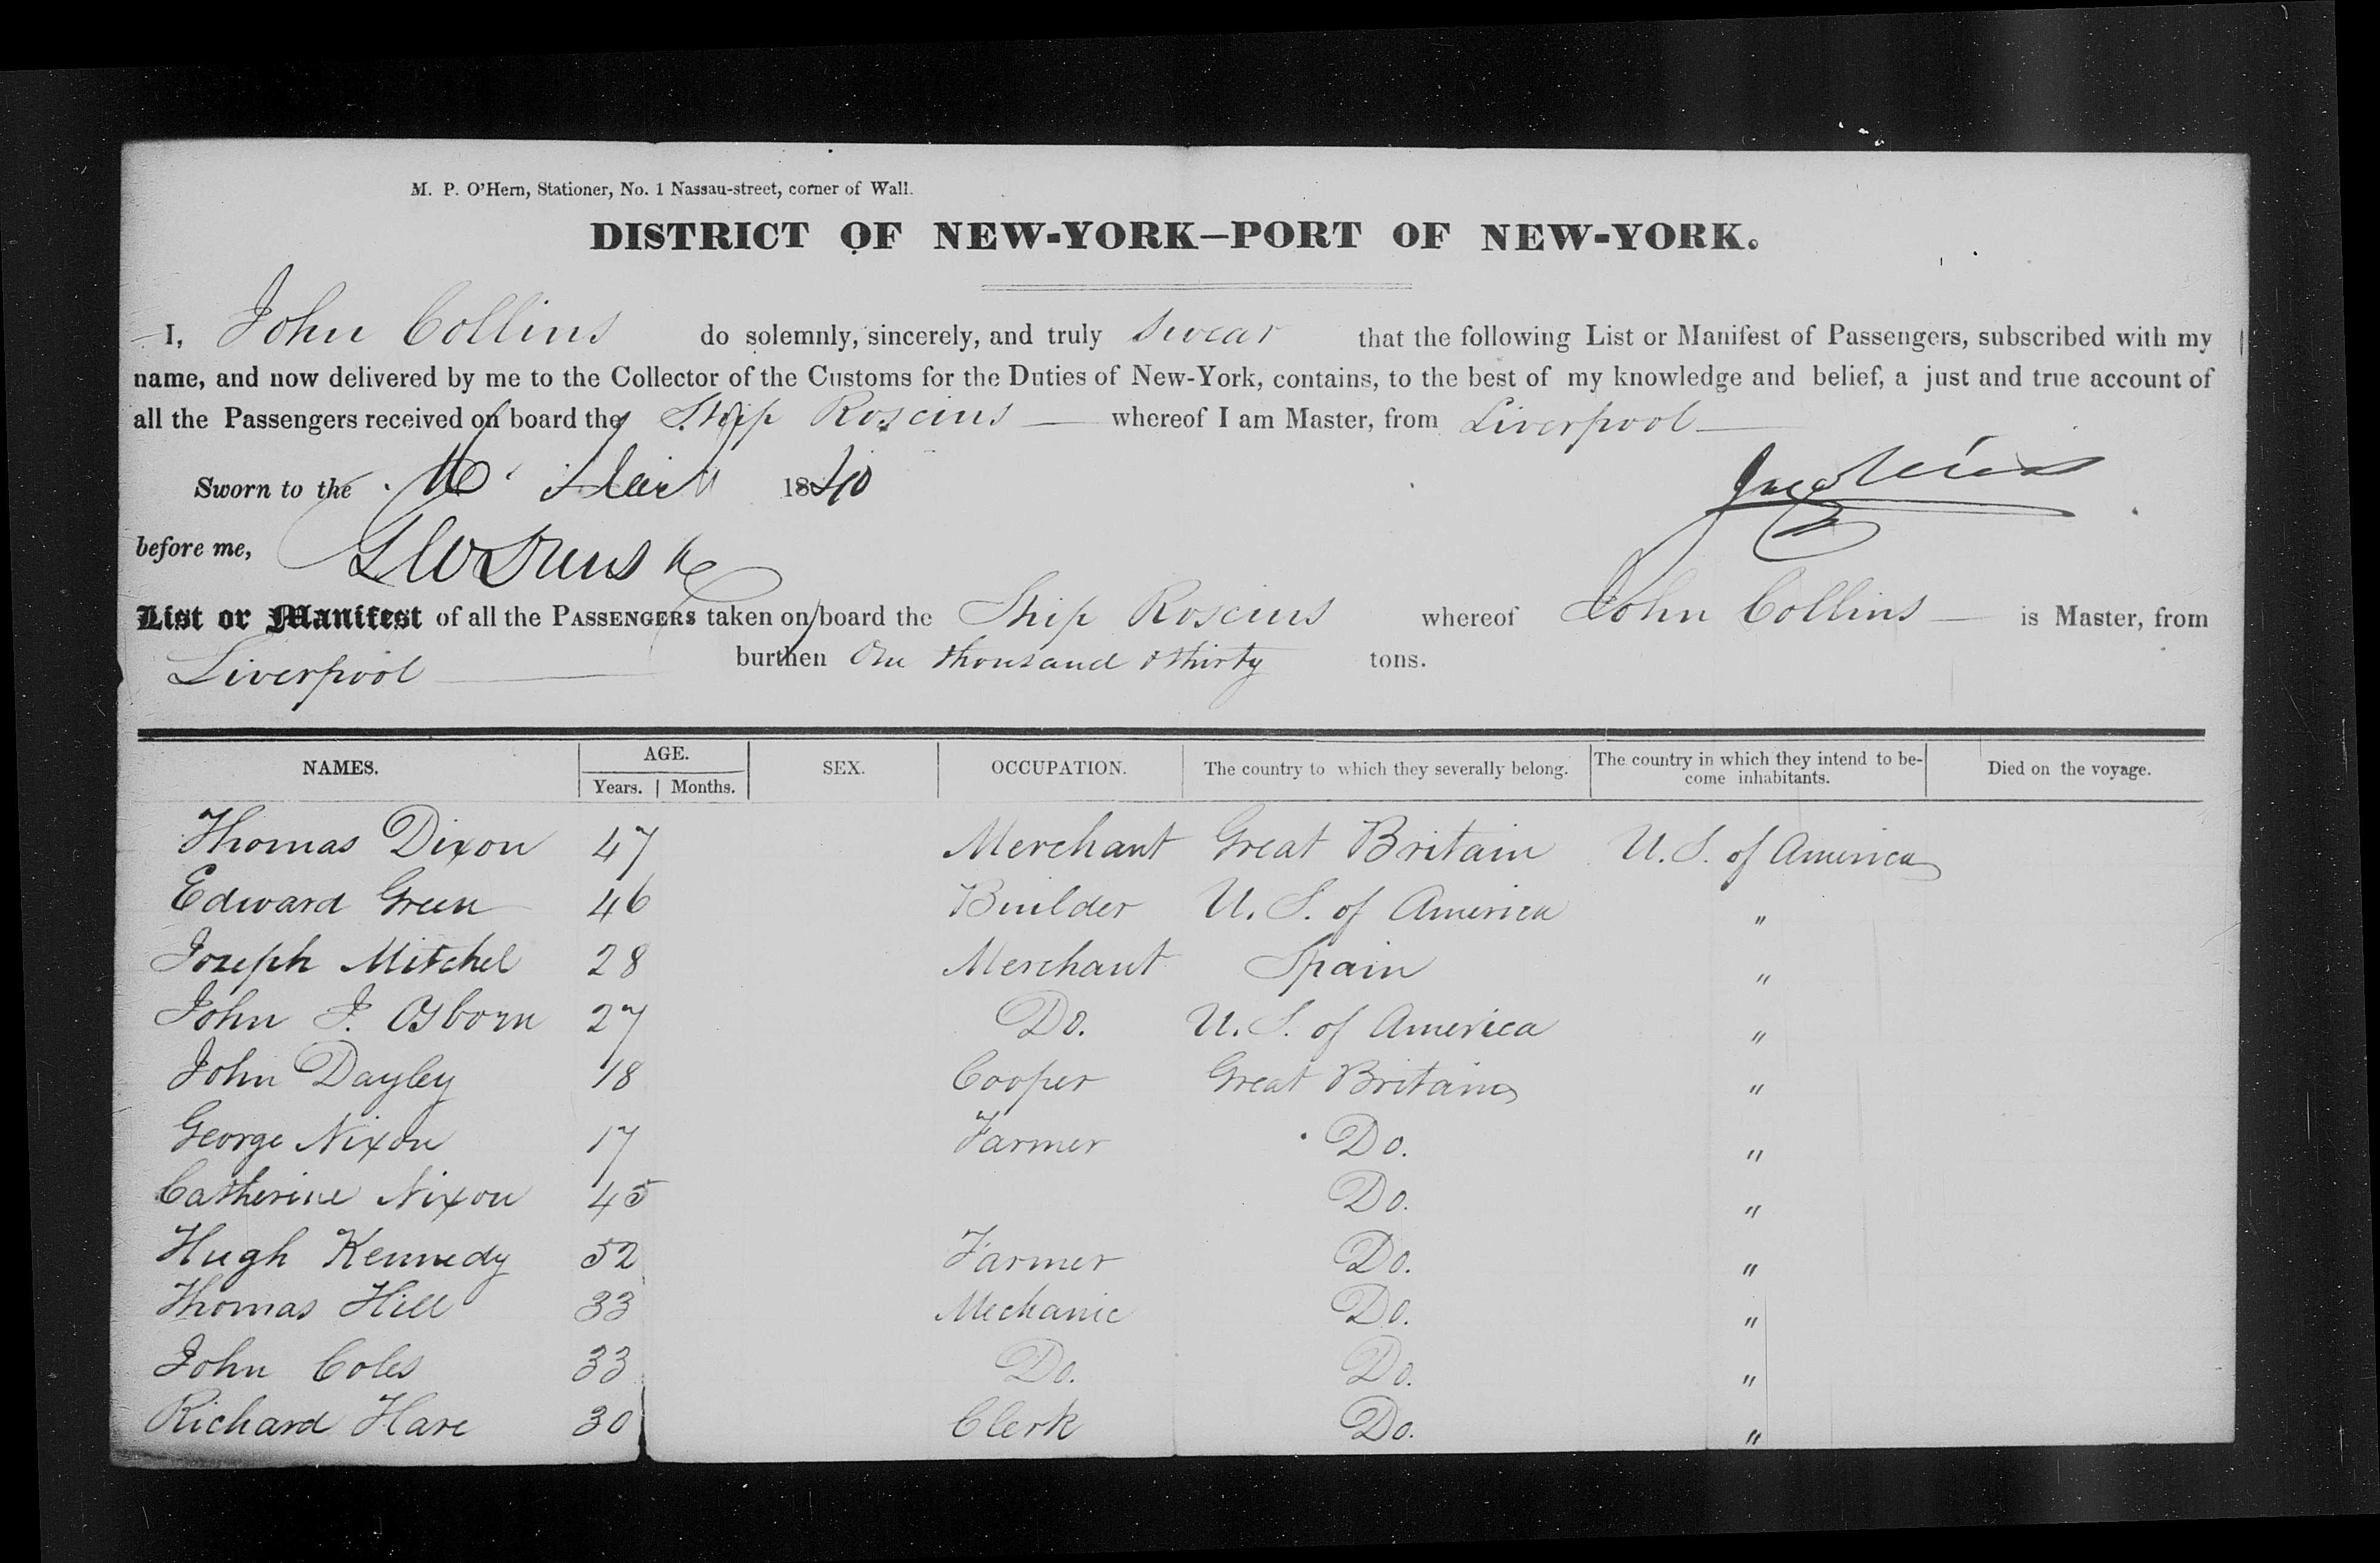 M. P. O'Hern, Stationer, No. 1 Nassau-street, corner of Wall.
DISTRICT OF NEW-YORK—PORT OF NEW-YORK.
I, John Collins do solemnly, sincerely, and truly swear that the following List or Manifest of Passengers, subscribed with my
name, and now delivered by me to the Collector of the Customs for the Duties of New-York, contains, to the best of my knowledge and belief, a just and true account of
all the Passengers received on board the Ship Roscius — whereof I am Master, from Liverpool —
Sworn to the 1840
before me,
List or Manifest of all the PASSENGERS taken on board the Ship Roscius whereof John Collins — is Master, from
Liverpool — burthen One thousand & thirty tons.
NAMES. AGE. Years. Months. SEX. OCCUPATION. The country to which they severally belong. The country in which they intend to be-come inhabitants. Died on the voyage.
Thomas Dixon 47 Merchant Great Britain U. S. of America
Edward Green 46 Builder U. S. of America "
Joseph Mitchel 28 Merchant Spain "
John J. Osborn 27 Do. U. S. of America "
John Dayley 18 Cooper Great Britain "
George Nixon 17 Farmer Do. "
Catherine Nixon 45 Do. "
Hugh Kennedy 52 Farmer Do. "
Thomas Hill 33 Mechanic Do. "
John Coles 33 Do. Do. "
Richard Hare 30 Clerk Do. "